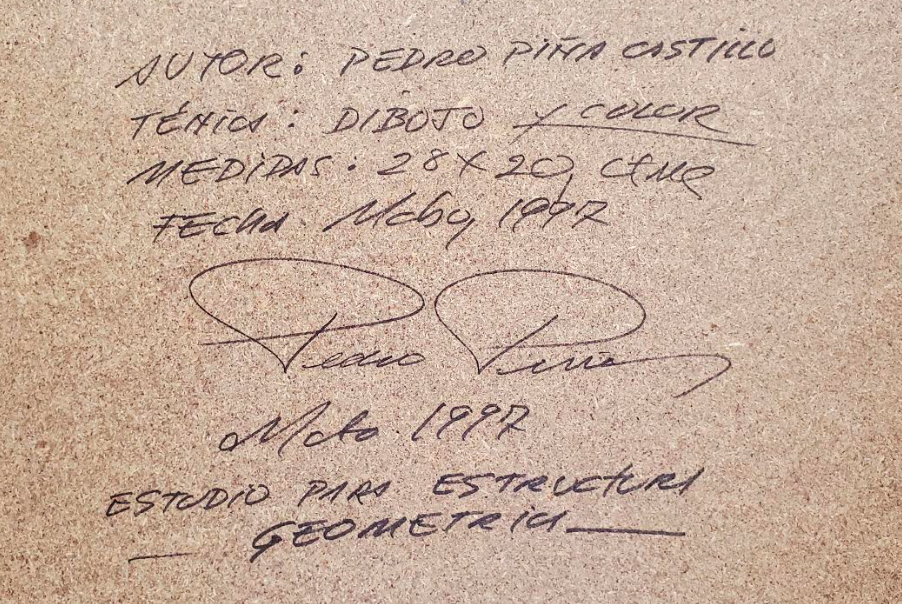 AUTOR: PEDRO PIÑA CASTILLO
TÉNICA: DIBUJO Y COLOR
MEDIDAS: 28 X 20, CTMS
FECHA Mcbo, 1997
Pedro Piña
Mcbo. 1997
ESTUDIO PARA ESTRUCTURA
GEOMETRICA